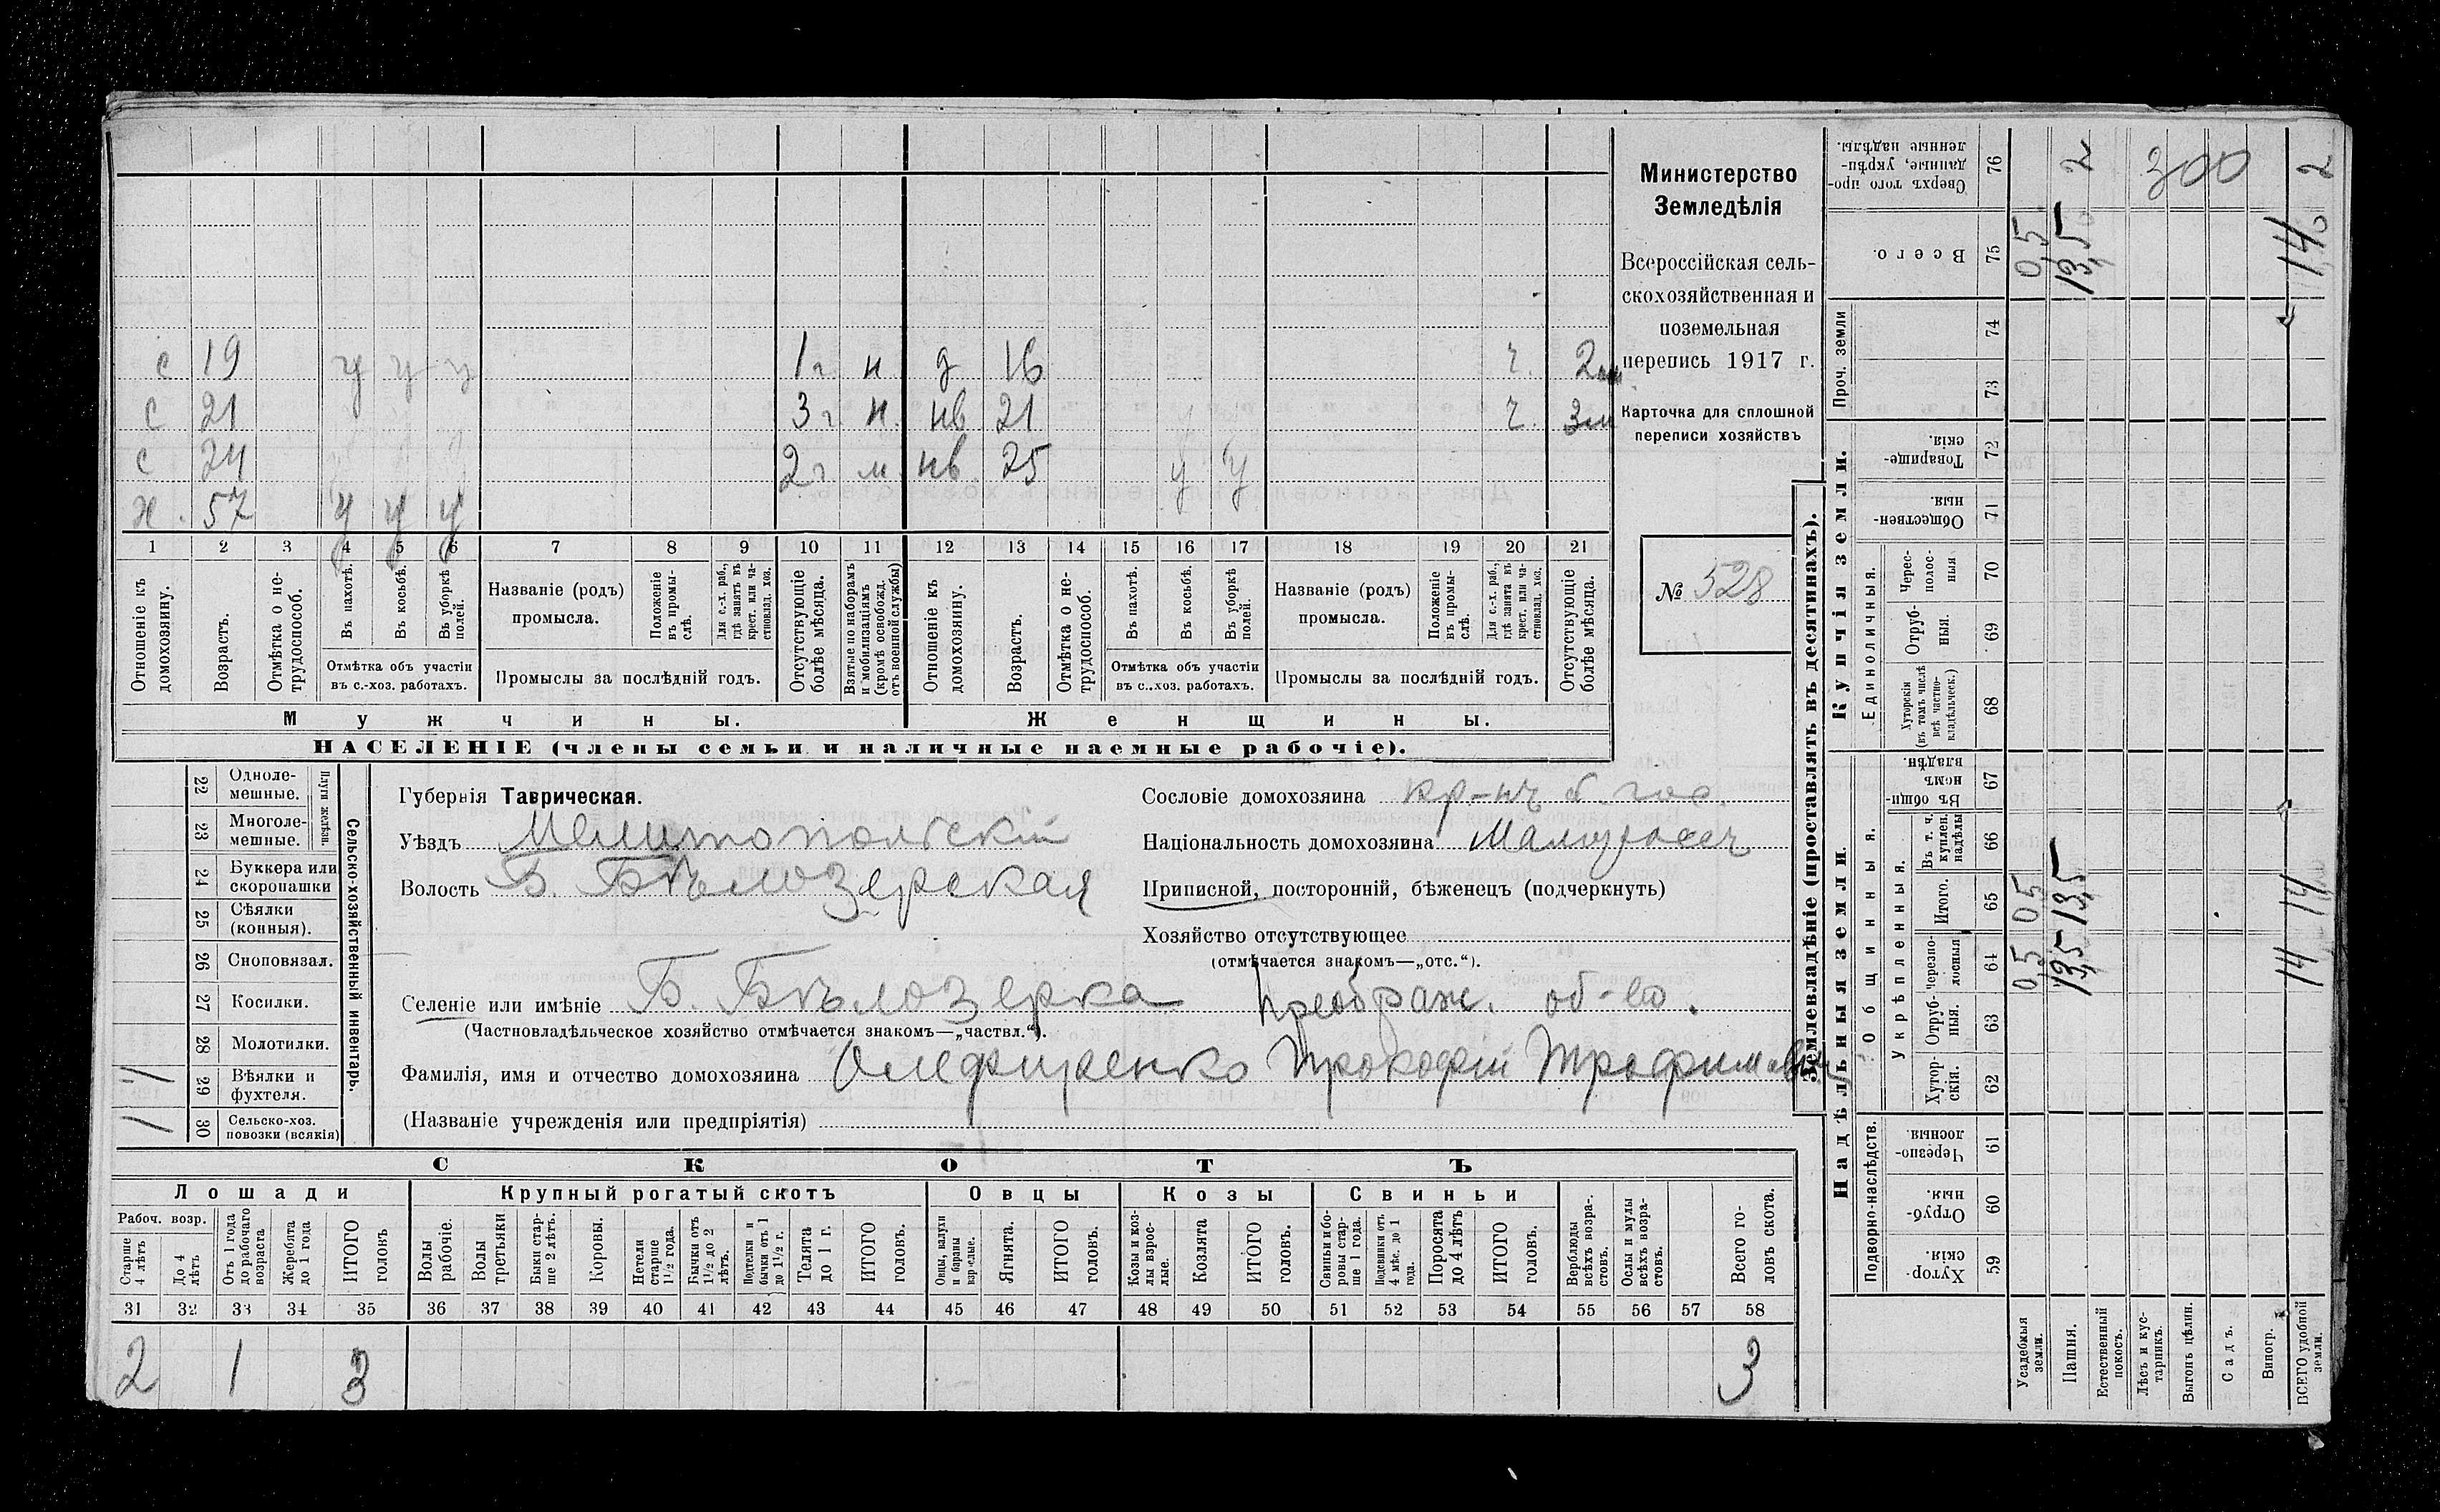 с 19 у у у 1 г. н д 16 г. 2 м
с 21 3 г. н. нв 21 г. 3 м
с 24 2 г м нв. 25 у у
х. 57 у у у
1 2 3 4 5 6 7 8 9 10 11 12 13 14 15 16 17 18 19 20 21
Отношеніе къ домохозяину.
Возрастъ.
Отмѣтка о не-трудоспособ.
Въ пахотѣ.
Въ косьбѣ.
Въ уборкѣ полей.
Отмѣтка объ участіи
въ с.-хоз. работахъ.
Названіе (родъ)
промысла.
Положеніе въ промы-слѣ.
Для с.-х. раб., гдѣ занятъ въ крест. или ча-стновлад. хоз.
Промыслы за послѣдній годъ.
Отсутствующіе болѣе мѣсяца.
Взятые по наборамъ и мобилизаціямъ (кромѣ освобожд. отъ военной службы)
Отношеніе къ домохозяину.
Возрастъ.
Отмѣтка о не-трудоспособ.
Въ пахотѣ.
Въ косьбѣ.
Въ уборкѣ полей.
Отмѣтка объ участіи
въ с.-хоз. работахъ.
Названіе (родъ)
промысла.
Положеніе въ промы-слѣ.
Для с.-х. раб., гдѣ занята въ крест. или ча-стновлад. хоз.
Промыслы за послѣдній годъ.
Отсутствующіе болѣе мѣсяца.
Мужчины. Женщины.
НАСЕЛЕНІЕ (члены семьи и наличные наемные рабочіе).
Министерство
Земледѣлія
Всероссійская сель-
скохозяйственная и
поземельная
перепись 1917 г.
Карточка для сплошной
переписи хозяйствъ
№ 528
Сельско-хозяйственный инвентарь.
Плуги желѣзн.
22 Одноле-мешные.
23 Многоле-мешные.
24 Буккера или скоропашки
25 Сѣялки (конныя).
26 Сноповязал.
27 Косилки.
28 Молотилки.
1 29 Вѣялки и фухтеля.
1 30 Сельско-хоз. повозки (всякія)
Губернія Таврическая.
Уѣздъ Мелитопольскій
Волость Б. Бѣлозерская
Селеніе или имѣніе Б. Бѣлозерка Преображ. об-во.
(Частновладѣльческое хозяйство отмѣчается знакомъ—„частвл.“).
Фамилія, имя и отчество домохозяина Олефиренко Прокофій Трофимович
(Названіе учрежденія или предпріятія)
Сословіе домохозяина кр-нъ б. гос.
Національность домохозяина Малоросъ
Приписной, посторонній, бѣженецъ (подчеркнуть)
Хозяйство отсутствующее
(отмѣчается знакомъ—„отс.“).
СКОТЪ
Лошади Крупный рогатый скотъ Овцы Козы Свиньи
Рабоч. возр.
Старше 4 лѣтъ
До 4 лѣтъ
Отъ 1 года до рабочаго возраста
Жеребята до 1 года
ИТОГО головъ
Волы рабочіе.
Волы третьяки
Быки стар-ше 2 лѣтъ.
Коровы.
Нетели старше 1 1/2 года.
Бычки отъ 1 1/2 до 2 лѣтъ.
Подтелки и бычки отъ 1 до 1 1/2 г.
Телята до 1 г.
ИТОГО головъ.
Овцы, валухи и бараны взрослые.
Ягнята.
ИТОГО головъ.
Козы и коз-лы взрос-лые.
Козлята
ИТОГО головъ.
Свиньи и бо-ровы стар-ше 1 года.
Подсвинки отъ 4 мѣс. до 1 года.
Поросята до 4 лѣтъ
ИТОГО головъ.
Верблюды всѣхъ возра-стовъ.
Ослы и мулы всѣхъ возра-стовъ.
Всего го-ловъ скота.
31 32 33 34 35 36 37 38 39 40 41 42 43 44 45 46 47 48 49 50 51 52 53 54 55 56 57 58
2 1 3 3
Землевладѣніе (проставлять въ десятинахъ).
Надѣльныя земли.
Купчія земли.
Проч. земли
Подворно-наслѣдств.
Общинныя.
Укрѣпленныя.
Единоличныя.
Сверхъ того про-данные, укрѣп-ленные надѣлы. 76 2 300 2
Всего. 75 0,5 13,5 14,0
74
73
Товарище-скія. 72
Обществен-ныя. 71
Черес-полос-ныя 70
Отруб-ныя. 69
Хуторскія (въ томъ числѣ всѣ частно-владѣльческ.) 68
Въ общи-номъ владѣн. 67
Въ т. ч. куплен. надѣлы 66
Итого. 65 0,5 13,5 14
Черезпо-лосныя 64 0,5 13,5 14
Отруб-ныя. 63
Хутор-скія. 62
Черезпо-лосныя. 61
Отруб-ныя. 60
Хутор-скія. 59
Усадебныя земли.
Пашня.
Естественный покосъ.
Лѣсъ и кус-тарникъ.
Выгонъ цѣлин.
Садъ.
Виногр.
ВСЕГО удобной земли.